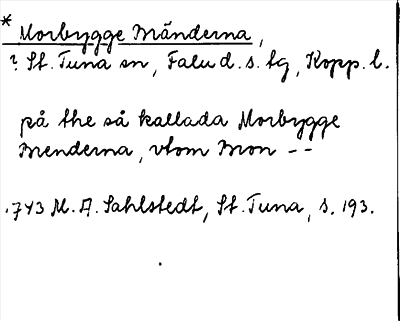 * Morbygge Bränderna,
? St. Tuna sn, Falu d.s. tg, Kopp. l.
på the så kallada Morbygge
Brenderna, vtom Bron --
.743 M. A. Sahlstedt, St. Tuna, s. 193.